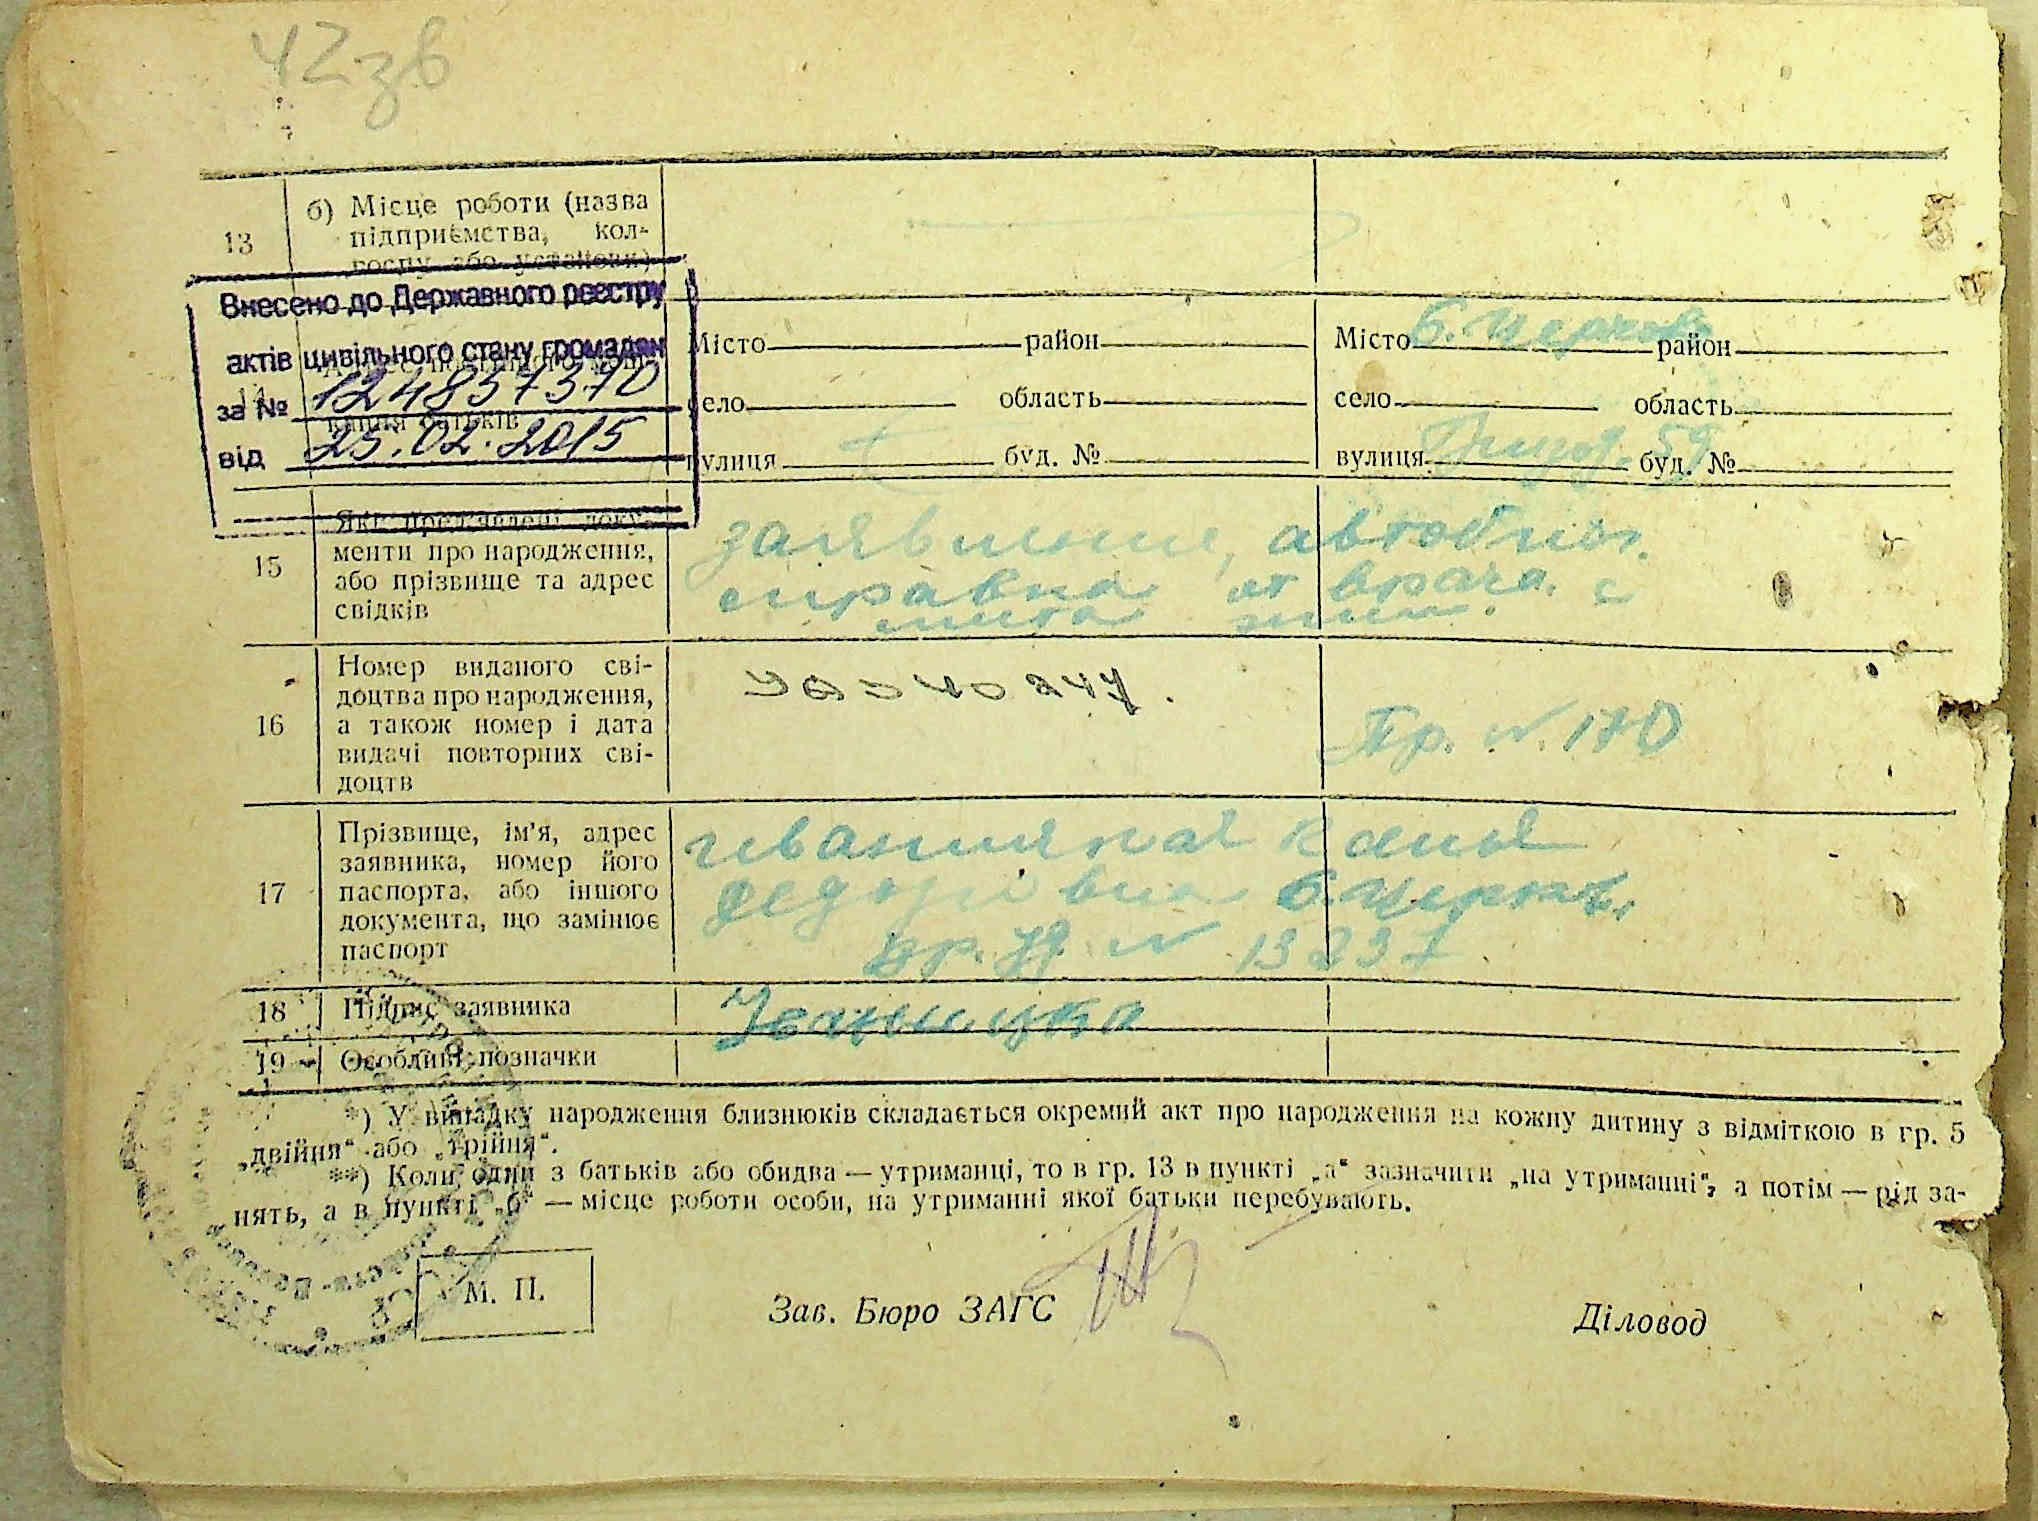 42зв
13
б) Місце роботи (назва
підприємства, кол-
госпу або установи)
Внесено до Державного реєстру
актів цивільного стану громадян
за № 124857370
від 25.02.2015
14
вання батьків
Місто район
село область
вулиця буд. №
Місто Б. Церковь район
село область
вулиця 59 буд. №
15
Які пред'явлені доку-
менти про народження,
або прізвище та адрес
свідків
заявление, автобиог.
справка от врача. с
места жит.
16
Номер виданого сві-
доцтва про народження,
а також номер і дата
видачі повторних сві-
доцтв
247.
Пр. N. 170
17
Прізвище, ім'я, адрес
заявника, номер його
паспорта, або іншого
документа, що замінює
паспорт
Федорівна Б. Церков,
N 13237
18
Підпис заявника
19
Особливі позначки
*) У випадку народження близнюків складається окремий акт про народження на кожну дитину з відміткою в гр. 5
„двійня“ або „трійня“.
**) Коли один з батьків або обидва — утриманці, то в гр. 13 в пункті „а“ зазначити „на утриманні“, а потім — рід за-
нять, а в пункті „б“ — місце роботи особи, на утриманні якої батьки перебувають.
М. П.
Зав. Бюро ЗАГС
Діловод